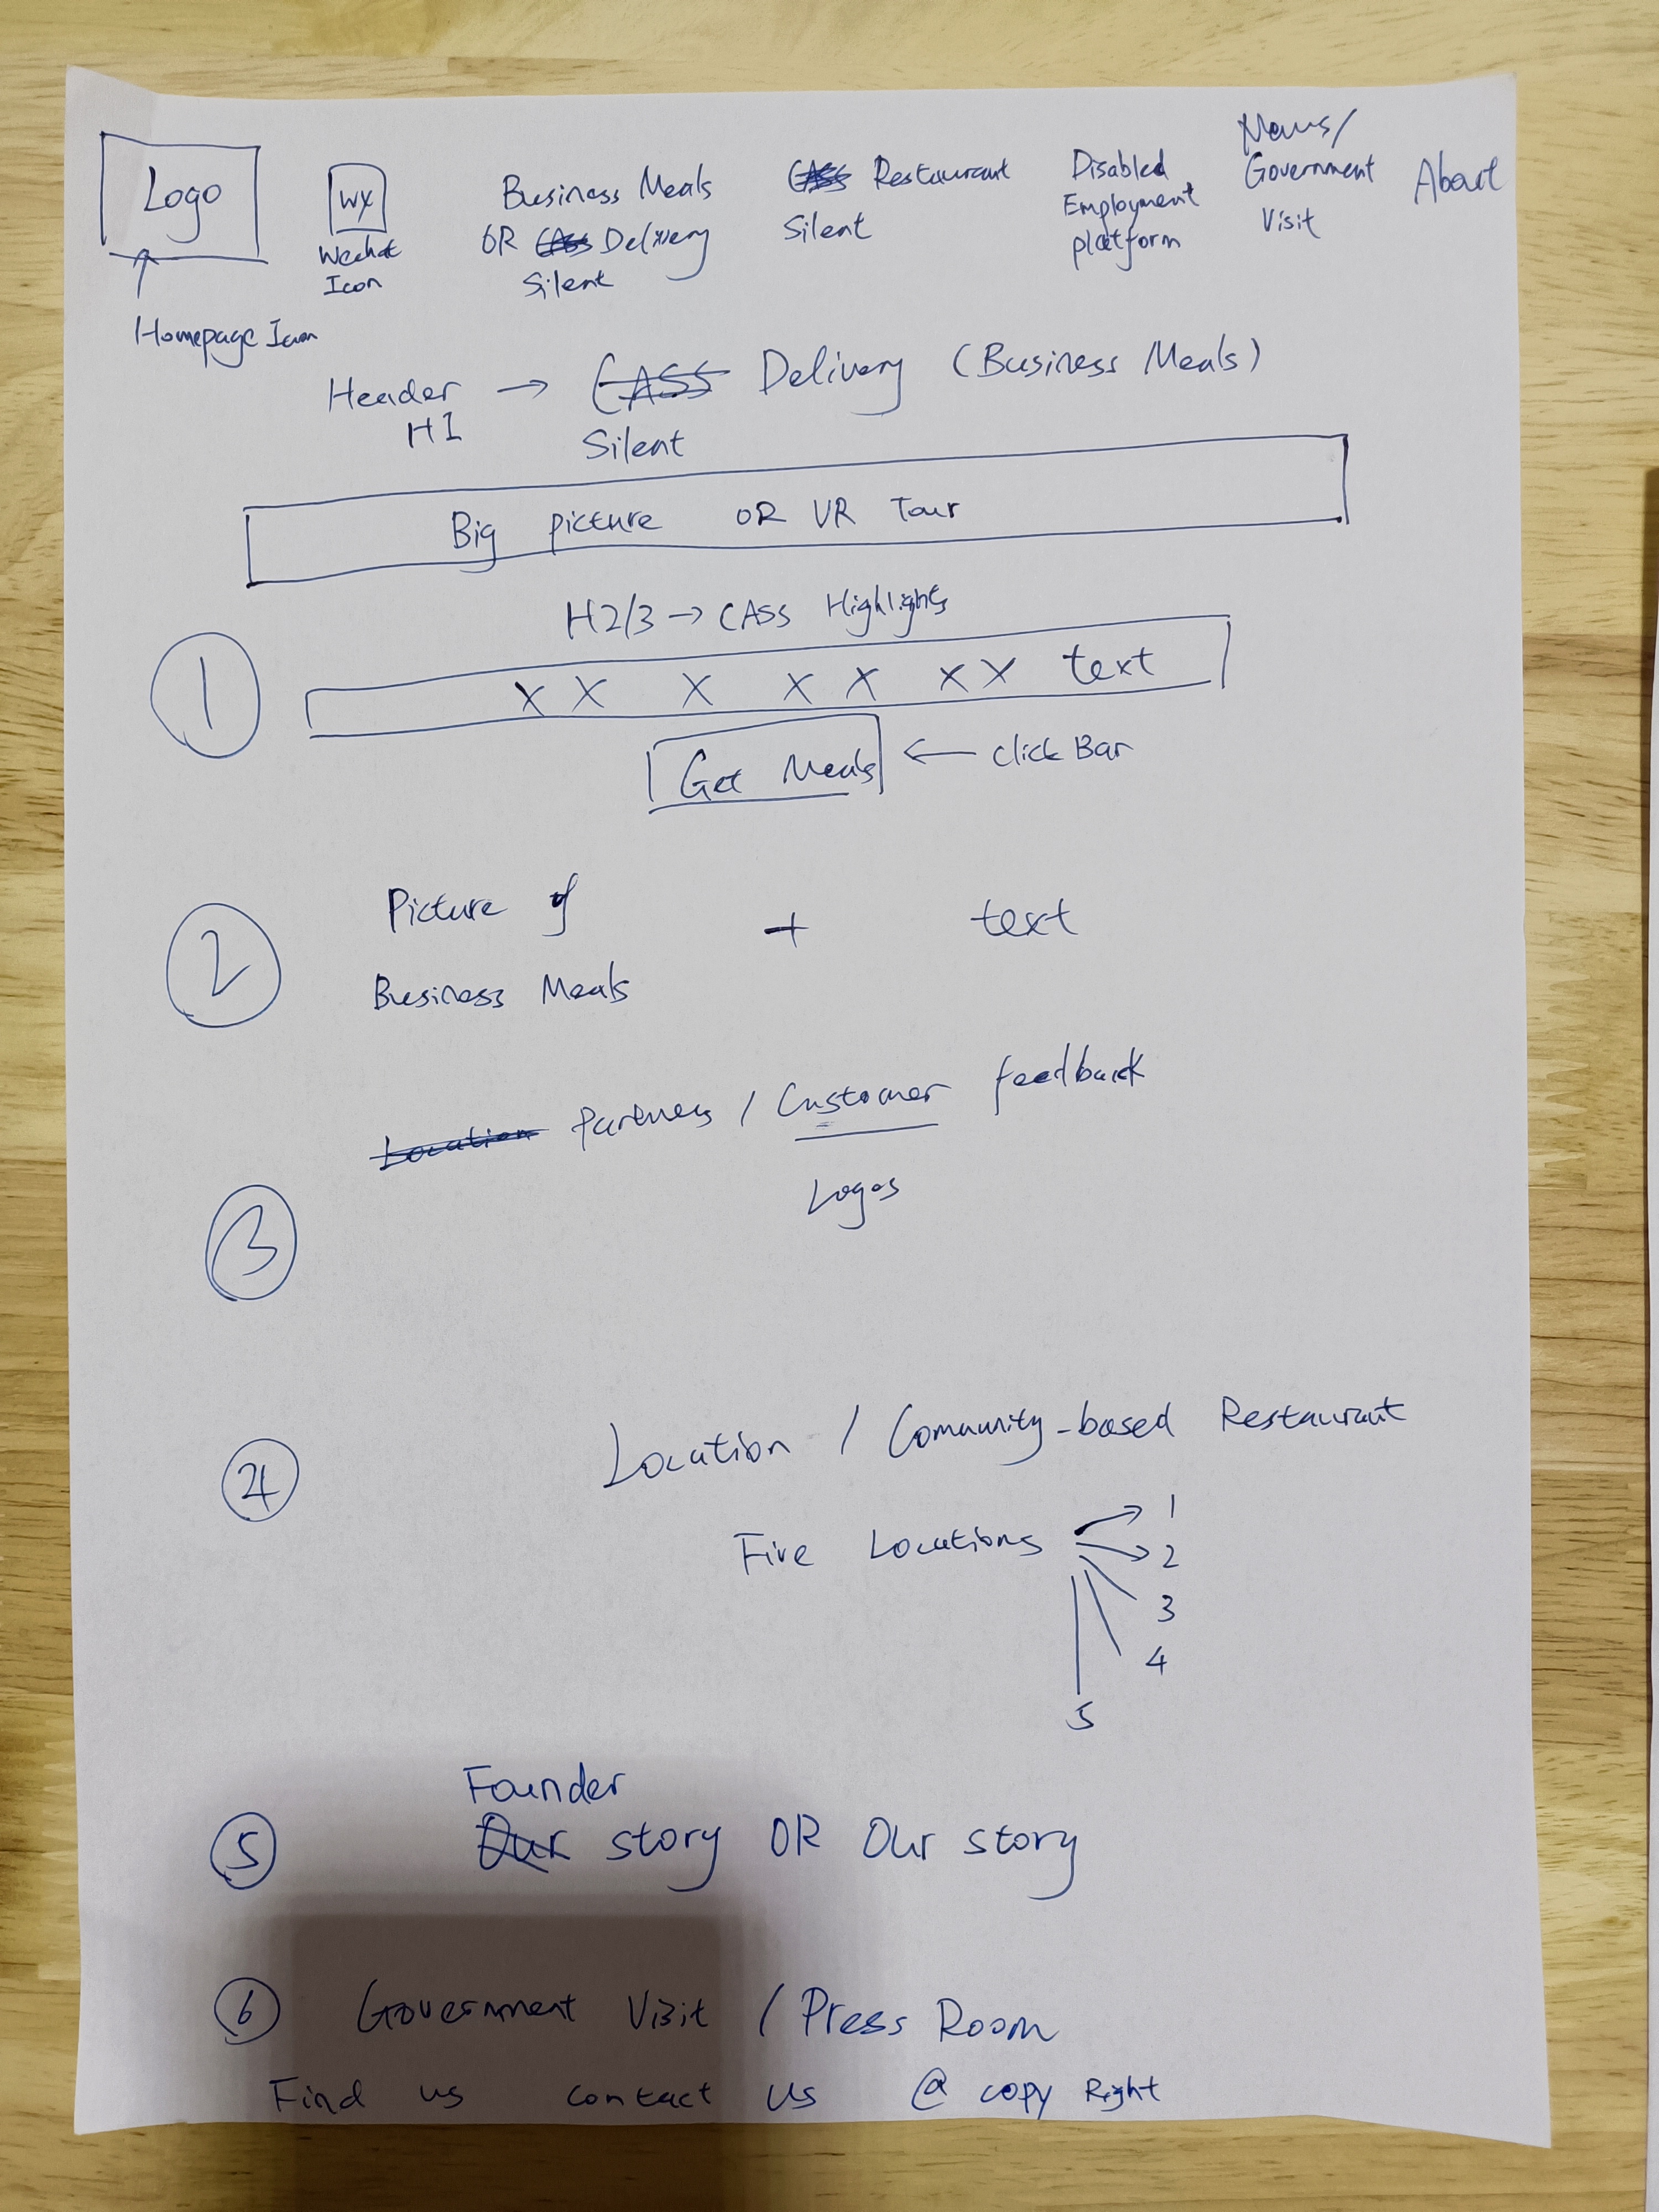 Logo
Homepage Icon
WX
Wechat
Icon
Business Meals
OR CASS Delivery
Silent
CASS Restaurant
Silent
Disabled
Employment
platform
News/
Government
Visit
About
Header → CASS Delivery (Business Meals)
H1
Silent
Big picture OR VR Tour
H2/3 → CASS Highlights
1
X X X X X X X text
Get Meals ← click Bar
2
Picture of + text
Business Meals
Location Partners / Customer feedback
Logos
3
4
Location / Community-based Restaurant
Five Locations
1
2
3
4
5
Founder
5 Our story OR Our story
6 Government Visit / Press Room
Find us contact us @ copy Right